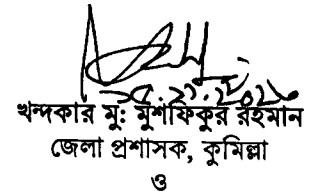 খন্দকার মু: মুশফিকুর রহমান
জেলা প্রশাসক, কুমিল্লা
ও